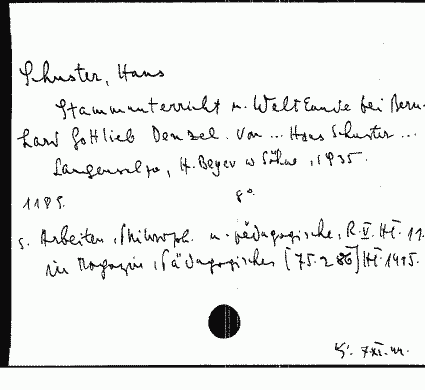 Schuster, Hans
Stammunterricht u. Weltkunde bei Bern-
hard Gottlieb Denzel. Von ... Hans Schuster ...
Langensalza, H. Beyer u Söhne, 1935.
118 S. 8°.
s. Arbeiten, Philosoph. u. pädagogische, R. V. Hft. 11.
in Magazin, Pädagogisches [75.286] Hft. 1415.
7 XI. 44.